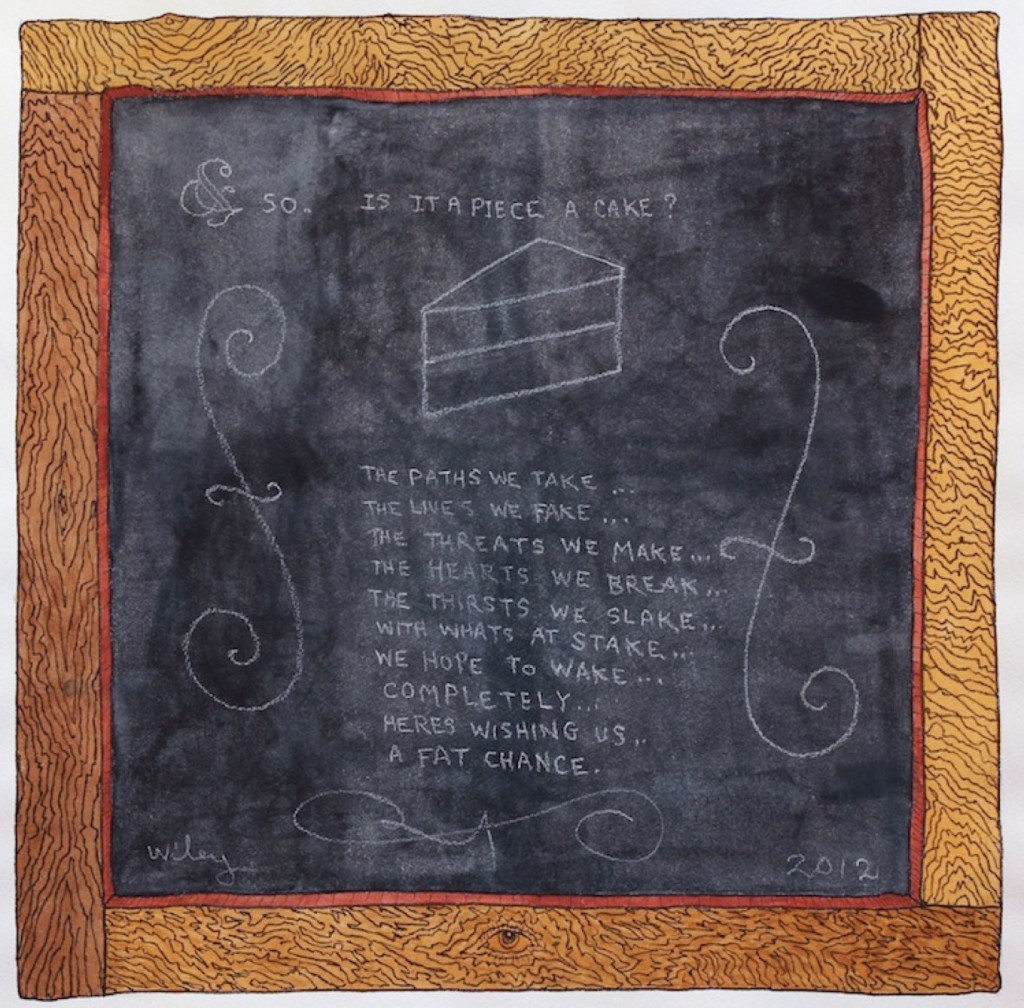 & SO. IS IT A PIECE A CAKE?
THE PATHS WE TAKE...
THE LIVES WE FAKE...
THE THREATS WE MAKE...
THE HEARTS WE BREAK...
THE THIRSTS WE SLAKE...
WITH WHATS AT STAKE...
WE HOPE TO WAKE...
COMPLETELY...
HERES WISHING US..
A FAT CHANCE.
Wiley 2012